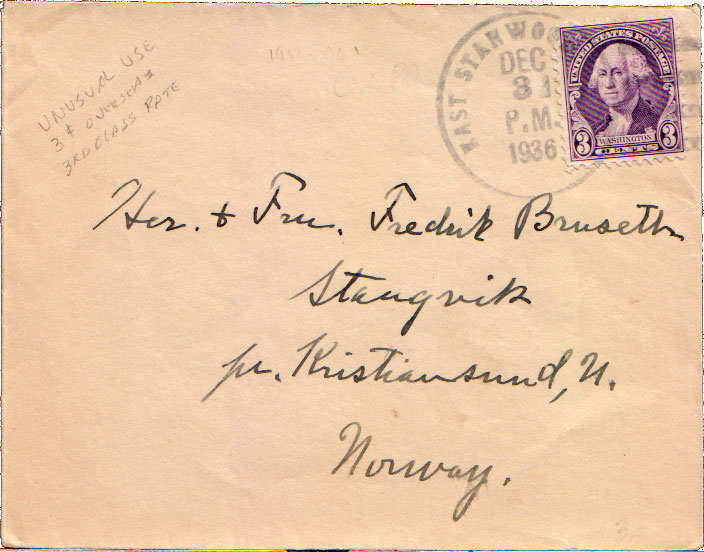 UNUSUAL USE
3¢ OVERSEAS
3RD CLASS RATE
EAST STANWOO
DEC
31
P.M.
1936
UNITED STATES POSTAGE
3 WASHINGTON 3
CENTS
Her. + Fru. Fredrik Brusett
Stangvik
pr. Kristiansund, N.
Norway.